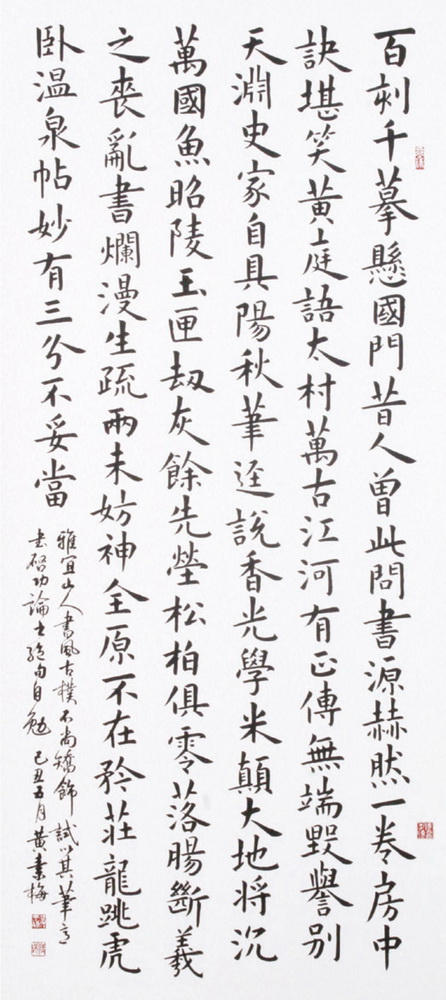 百刻千摹懸國門昔人曾此問書源赫然一卷房中
訣堪笑黃庭語太村萬古江河有正傳無端毀譽別
天淵史家自具陽秋筆逕說香光學米顛大地將沉
萬國魚昭陵玉匣刼灰餘先塋松柏俱零落腸斷羲
之喪亂書爛漫生疏兩未妨神全原不在矜莊龍跳虎
臥溫泉帖妙有三分不妥當
雅宜山人書風古樸不尚矯飾試以其筆意
書啓功論書絕句自勉 己丑五月黃素梅